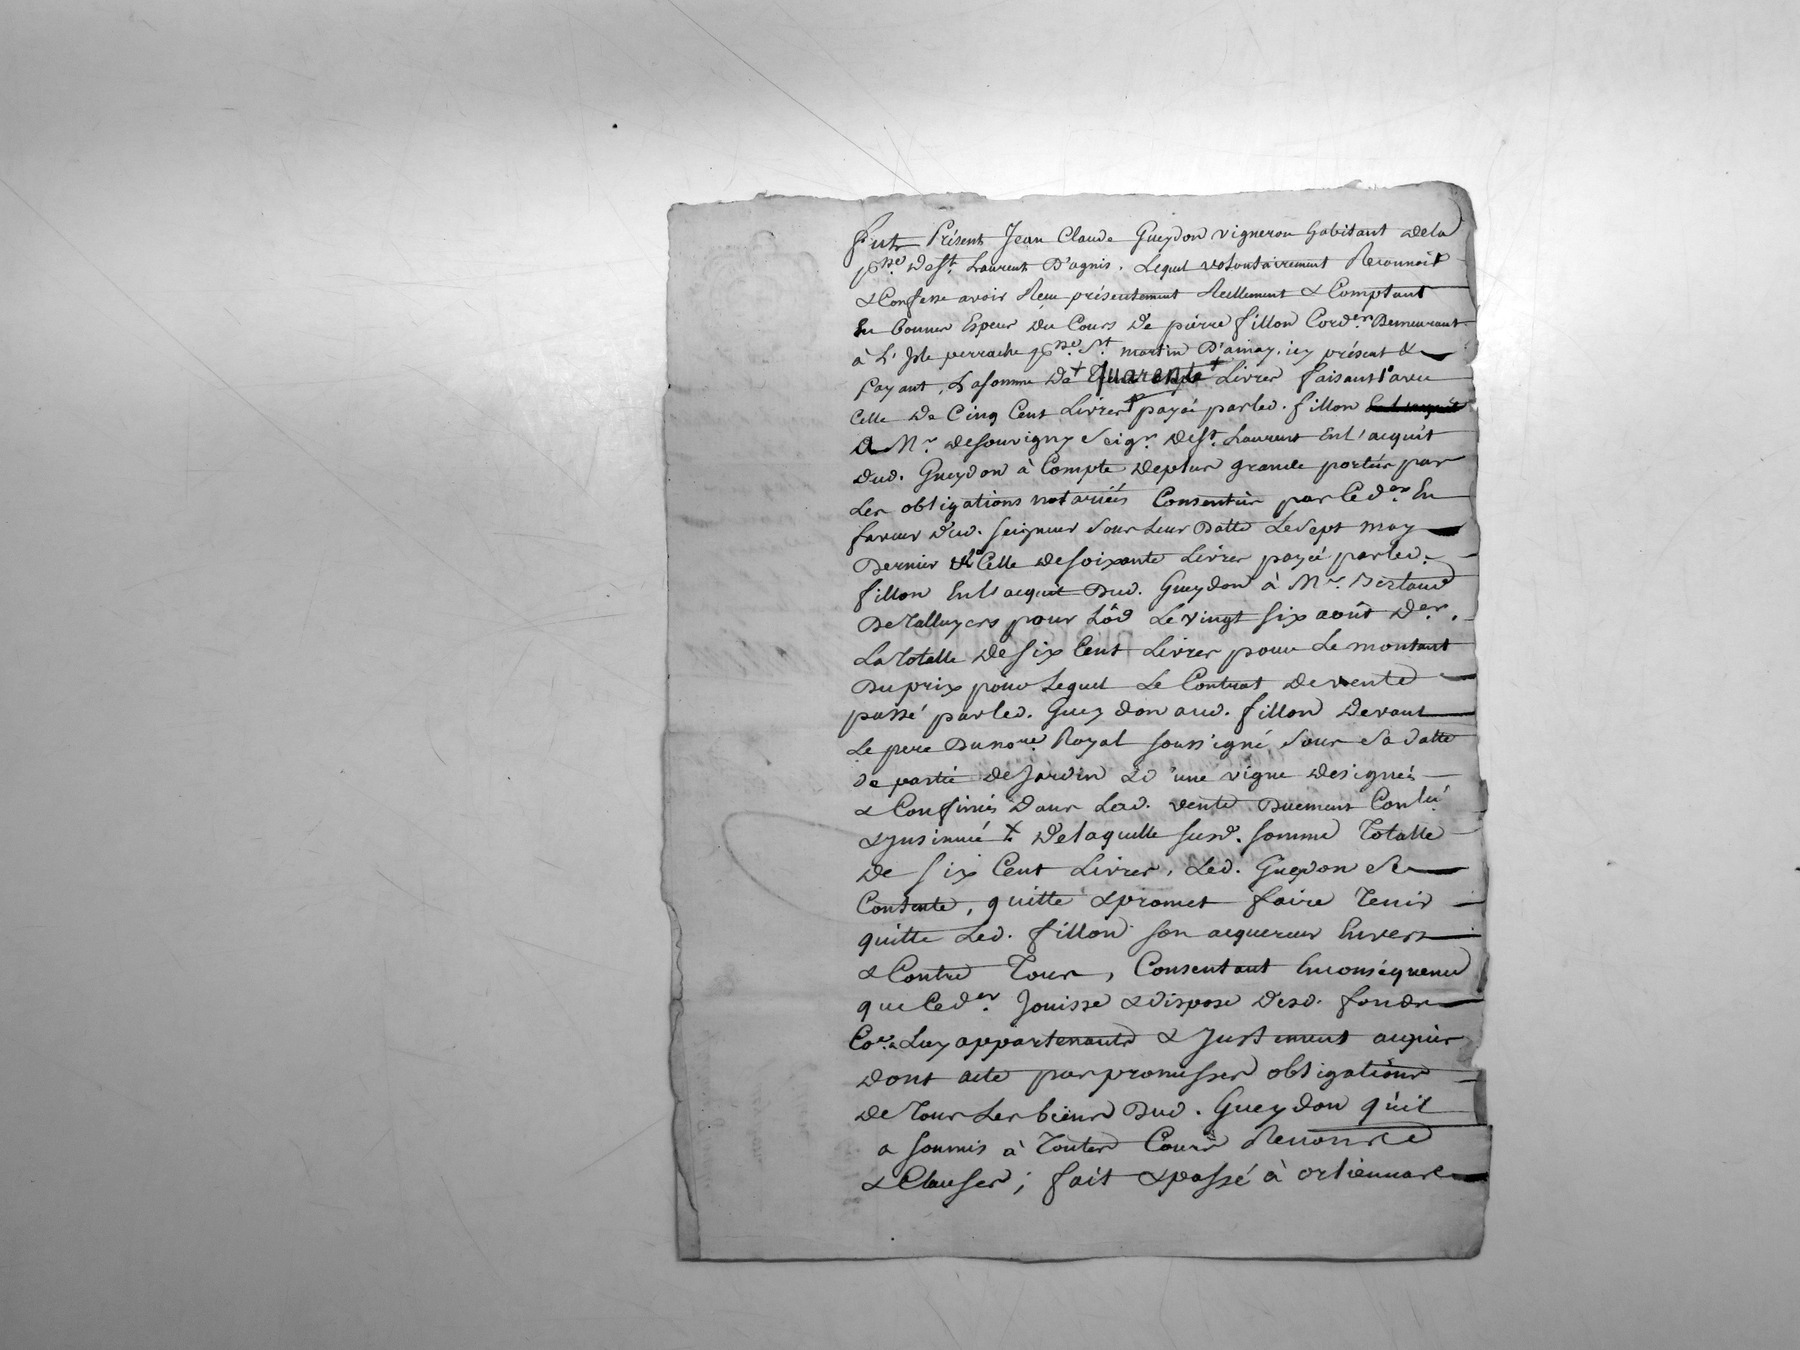 fut Présent Jean Claude Gueydon vigneron habitant dela
psse. de st. Laurent D'agnis. Lequel volontairement Reconnoit
& Confesse avoir Reçu présentement Reellement & Comptant
En bonnes Especes Du Cours De pierre fillon Corder. Demeurant
à L'Isle perrache psse. St. martin D'ainay. icy présent &
payant, La somme De + quarante + Livres faisant avec
Celle De Cinq Cent Livres payée par led. fillon
A Mr. de souvigny Seigr. de st. Laurent En l'acquit
dud. Gueydon à Compte deplus grande portées par
Les obligations notariées Consenties par Ceder. En
faveur dud. seigneur sous Leur Datte Le sept may
Dernier & Celle de soixante Livres payée par led.
fillon En l'acquit Dud. Gueydon à Mr.
De Talluyers pour Lôd Le vingt six août Der.
La Totalle de six Cent Livres pour Le montant
Du prix pour Lequel Le Contrat de vente
passé par led. Gueydon aud. fillon devant
Le pere Du nore. Royal soussigné sous sa datte
de partie de Jardin & d'une vigne designés
& Confinés dans Lad. vente Duement Conlé.
& Insinuée + de laquelle susd. somme Totalle
De six Cent Livres, Led. Gueydon se
Contente, quitte & promet faire Tenir
quitte Led. fillon son acquereur Envers
& Contre Tous, Consentant En conséquence
que Ceder. Jouisse & dispose desd. fonds
Coe. a Luy appartenants & Justement acquis
dont acte par promesses obligations
de Tous Les biens Dud. Gueydon qu'il
a soumis à Toutes Cours Renonce
& Clauses; fait & passé à orliennas